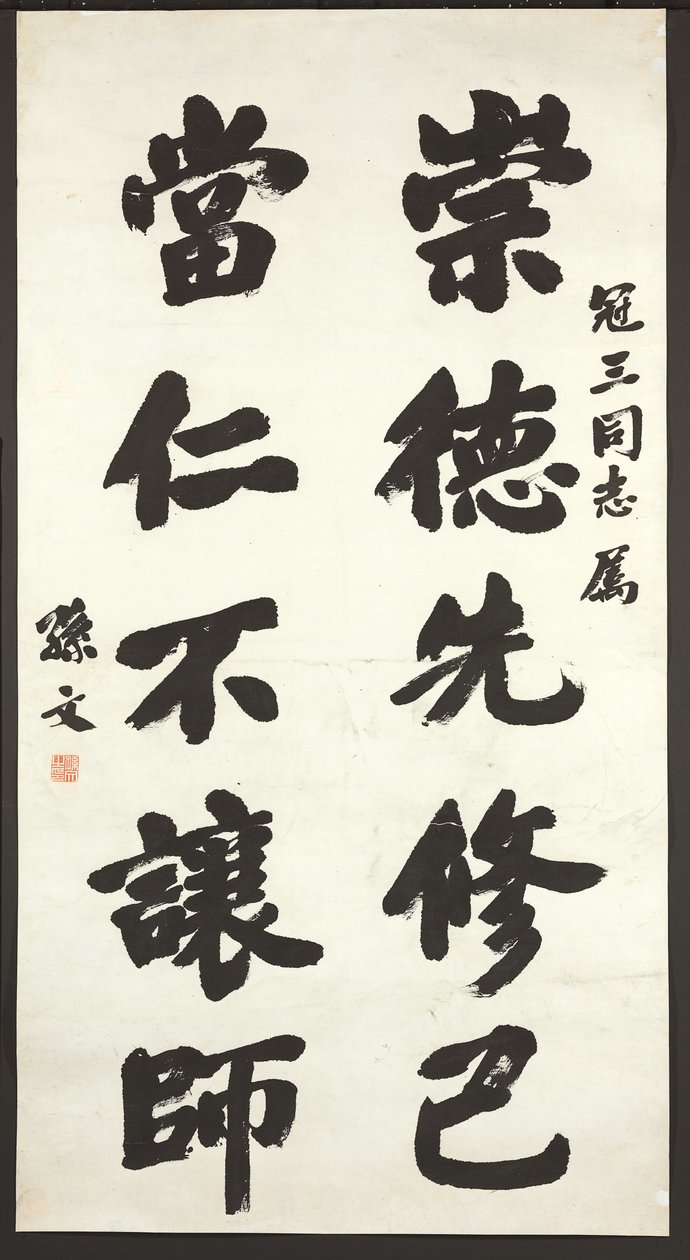 冠三同志屬
崇德先修己
當仁不讓師
孫文
孫文之印